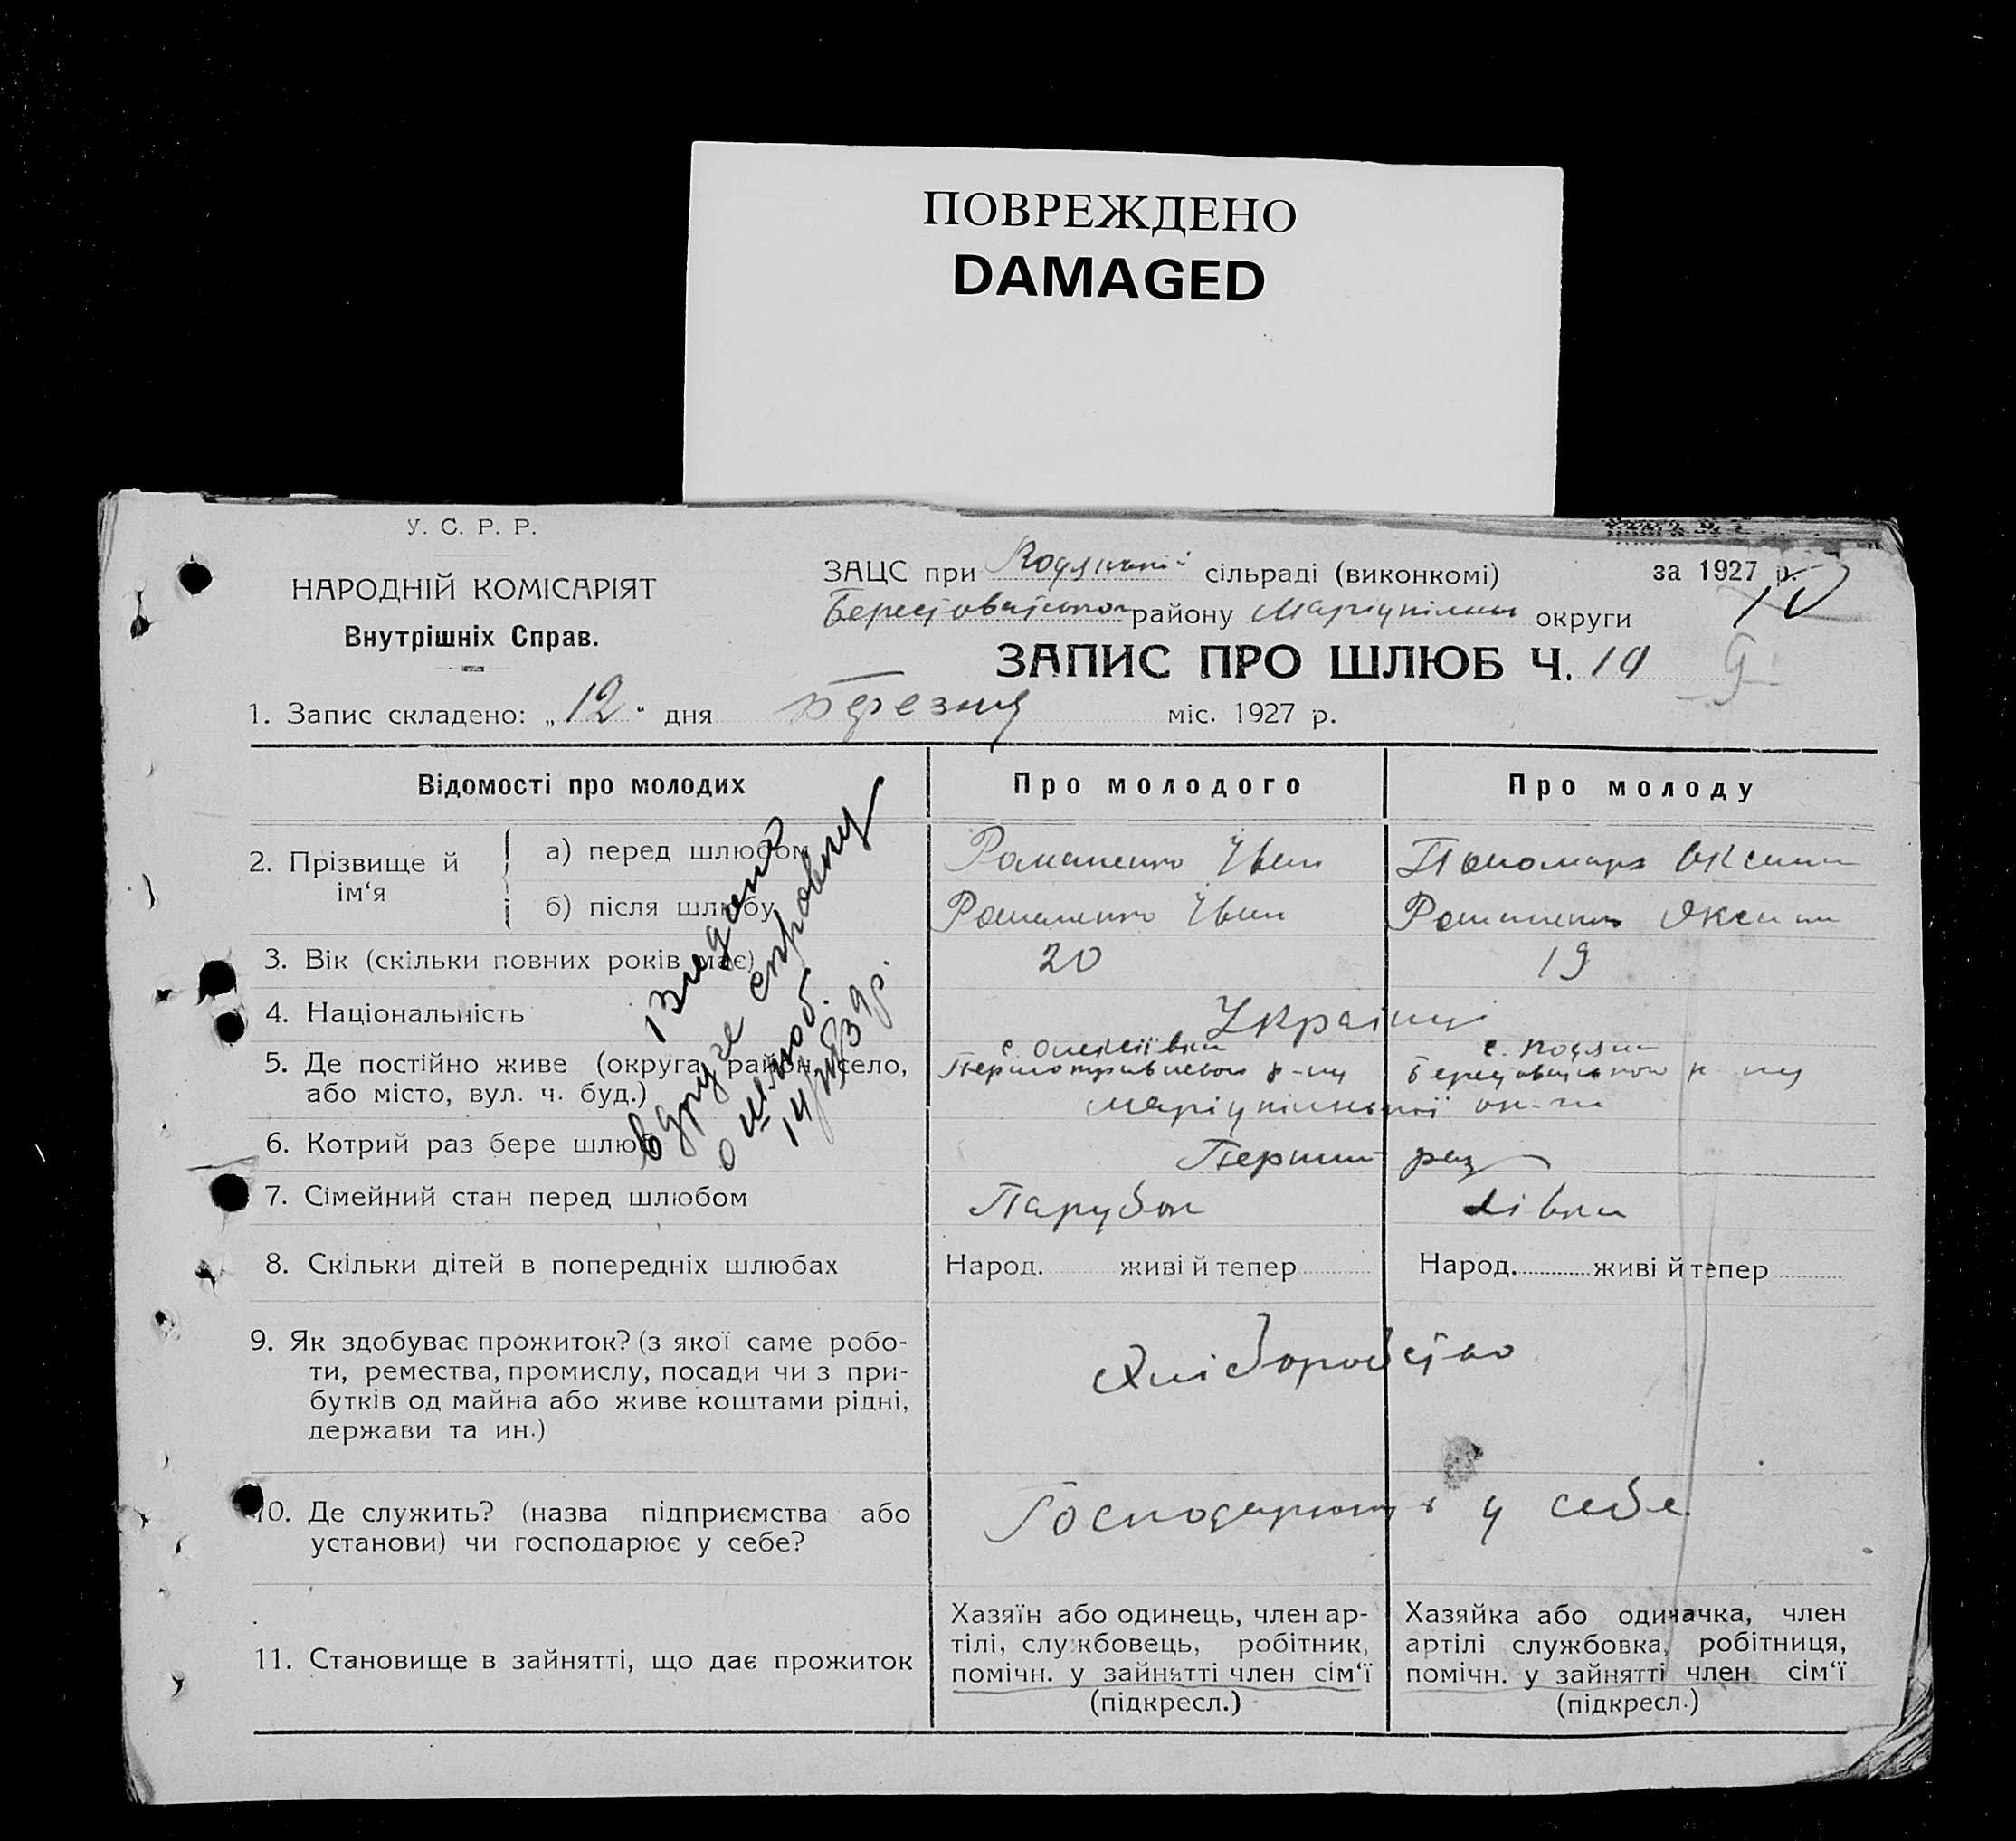 ПОВРЕЖДЕНО
DAMAGED
У. С. Р. Р.
НАРОДНІЙ КОМІСАРІЯТ
Внутрішніх Справ.
ЗАЦС при сільраді (виконкомі) за 1927 р.
району округи
ЗАПИС ПРО ШЛЮБ Ч. 10
1. Запис складено: „12“ дня Березня міс. 1927 р.
Відомості про молодих Про молодого Про молоду
2. Прізвище й ім‘я
а) перед шлюбом Романенко Іван Пономарь Оксана
б) після шлюбу Романенко Іван Романенко Оксана
3. Вік (скільки повних років має) 20 19
4. Національність Українці
5. Де постійно живе (округа, район, село,
або місто, вул. ч. буд.)
6. Котрий раз бере шлюб Перший раз
7. Сімейний стан перед шлюбом Парубок Дівка
8. Скільки дітей в попередніх шлюбах Народ. живі й тепер Народ. живі й тепер
9. Як здобуває прожиток? (з якої саме робо-
ти, ремества, промислу, посади чи з при-
бутків од майна або живе коштами рідні,
держави та ин.)
Хліборобство
10. Де служить? (назва підприємства або
установи) чи господарює у себе?
Господарюють у себе
11. Становище в зайнятті, що дає прожиток
Хазяїн або одинець, член ар-
тілі, службовець, робітник,
помічн. у зайнятті член сім‘ї
(підкресл.)
Хазяйка або одиначка, член
артілі службовка, робітниця,
помічн. у зайнятті член сім‘ї
(підкресл.)